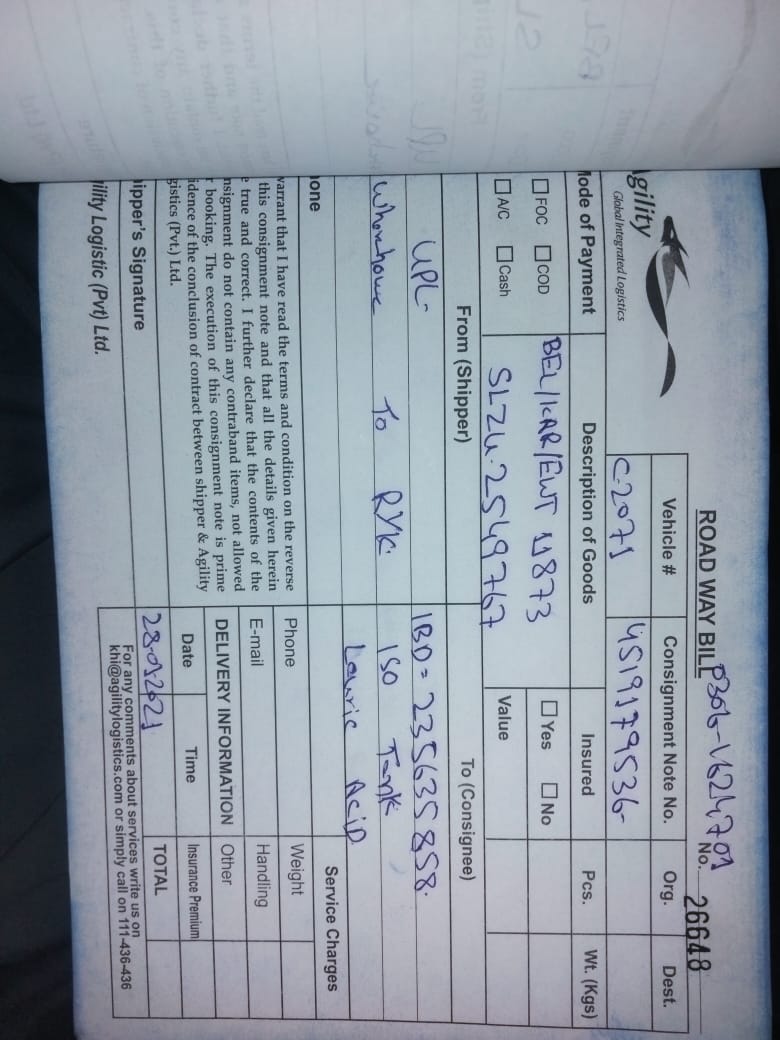 ROAD WAY BILL 0306-1624701
No. 26648
gility
Global Integrated Logistics
Vehicle # Consignment Note No. Org. Dest.
C-2071 4519179536-
ode of Payment Description of Goods Insured Pcs. Wt. (Kgs)
FOC COD BEL/KAR/EWT 11873 Yes No
A/C Cash SLZU.2549767 Value
From (Shipper) To (Consignee)
UPL- IBD = 235635858.
To RYK. ISO Tank
Lauric AciD
one Service Charges
warrant that I have read the terms and condition on the reverse
this consignment note and that all the details given herein
e true and correct. I further declare that the contents of the
nsignment do not contain any contraband items, not allowed
r booking. The execution of this consignment note is prime
idence of the conclusion of contract between shipper & Agility
gistics (Pvt.) Ltd.
Phone Weight
E-mail Handling
DELIVERY INFORMATION Other
Date Time Insurance Premium
28-01-2021 TOTAL
hipper's Signature
ility Logistic (Pvt) Ltd.
For any comments about services write us on
khi@agilitylogistics.com or simply call on 111-436-436